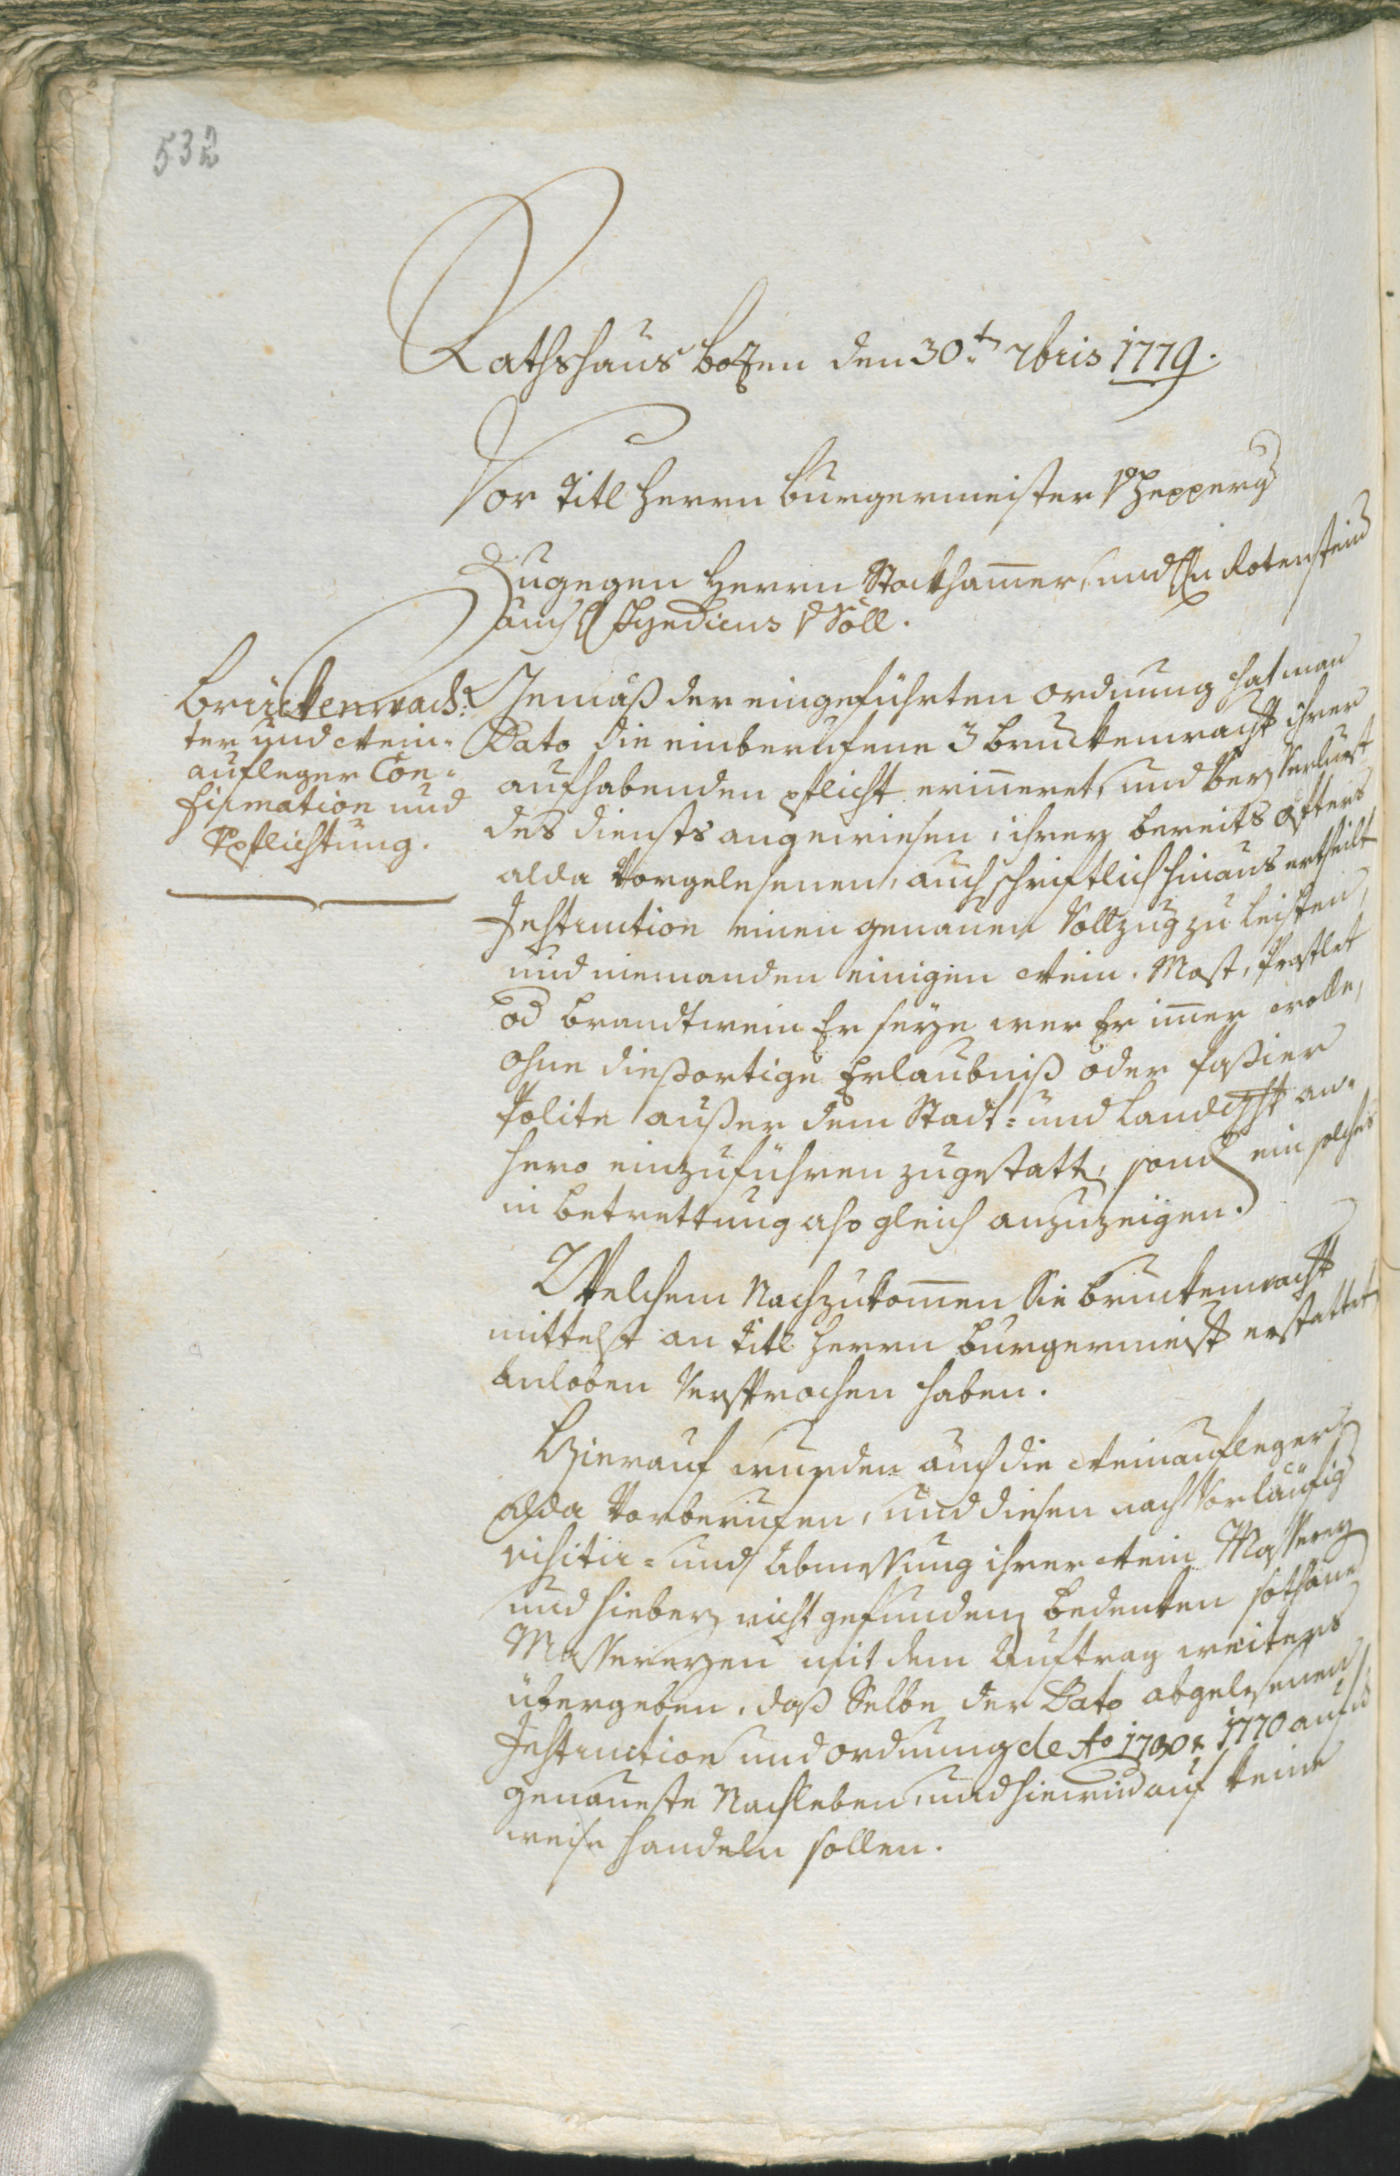 532
Rathshaus Bozen den 30.ten 7bris 1779.
Vor Titl Herrn Burgermeister v Hepperg
Zugegen Herrn Stockhamer, und H Rotenstein
auch H Syndicus v Söll.
Brückenwäch-
ter und Wein-
aufleger Con-
firmation und
Vpflichtung.
Gemäß der eingeführten Ordnung hat man
Dato die einberufene 3 Bruckenwächter ihrer
aufhabenden Pflicht erinneret, und bey Verlurst
des Diensts angewiesen, ihrer bereits öfters
alda vorgelesenen, auch schriftlich hinaus ertheilt
Instruction einen genauen Vollzug zu leisten,
und niemanden einigen Wein, Most, Praßlet
od Brandtwein Er seye wer Er imer wolle,
ohne diesortige Erlaubniß oder Paßier
Polite außer dem Stadt- und Landgcht an-
hero einzuführen zugestatten, sond ein solches
in Betrettung also gleich anzuzeigen.
Welchem Nachzukomen Sie Bruckenwächter
mittelst an Titl Herrn Burgermeister erstatteten
Anloben versprochen haben.
Hierauf wurden auch die Weinaufleger
alda vorberufen, und diesen nach vorläufig
visitir- und Abmessung ihrer Wein Masserey
und hiebey richt gefunden bedeuten sothane
Massereyen mit dem Auftrag weiters
übergeben, daß Selbe der Dato abgelesenen
Instruction und Ordnung de Ao 1730 & 1770 aufs
genaueste Nachleben, und hierwid auf keine
weise handeln sollen.